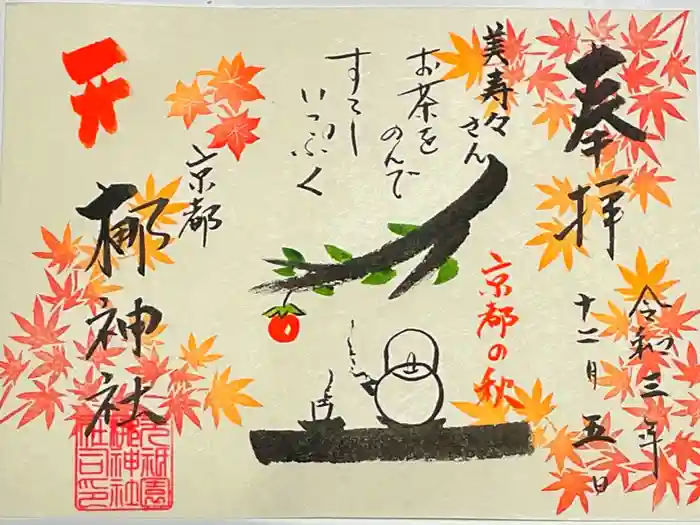 奉拝
令和三年
十二月五日
美寿々さん
お茶を
のんで
すこし
いっぷく
京都の秋
京都
梛神社
元祇園
梛神社
社司印